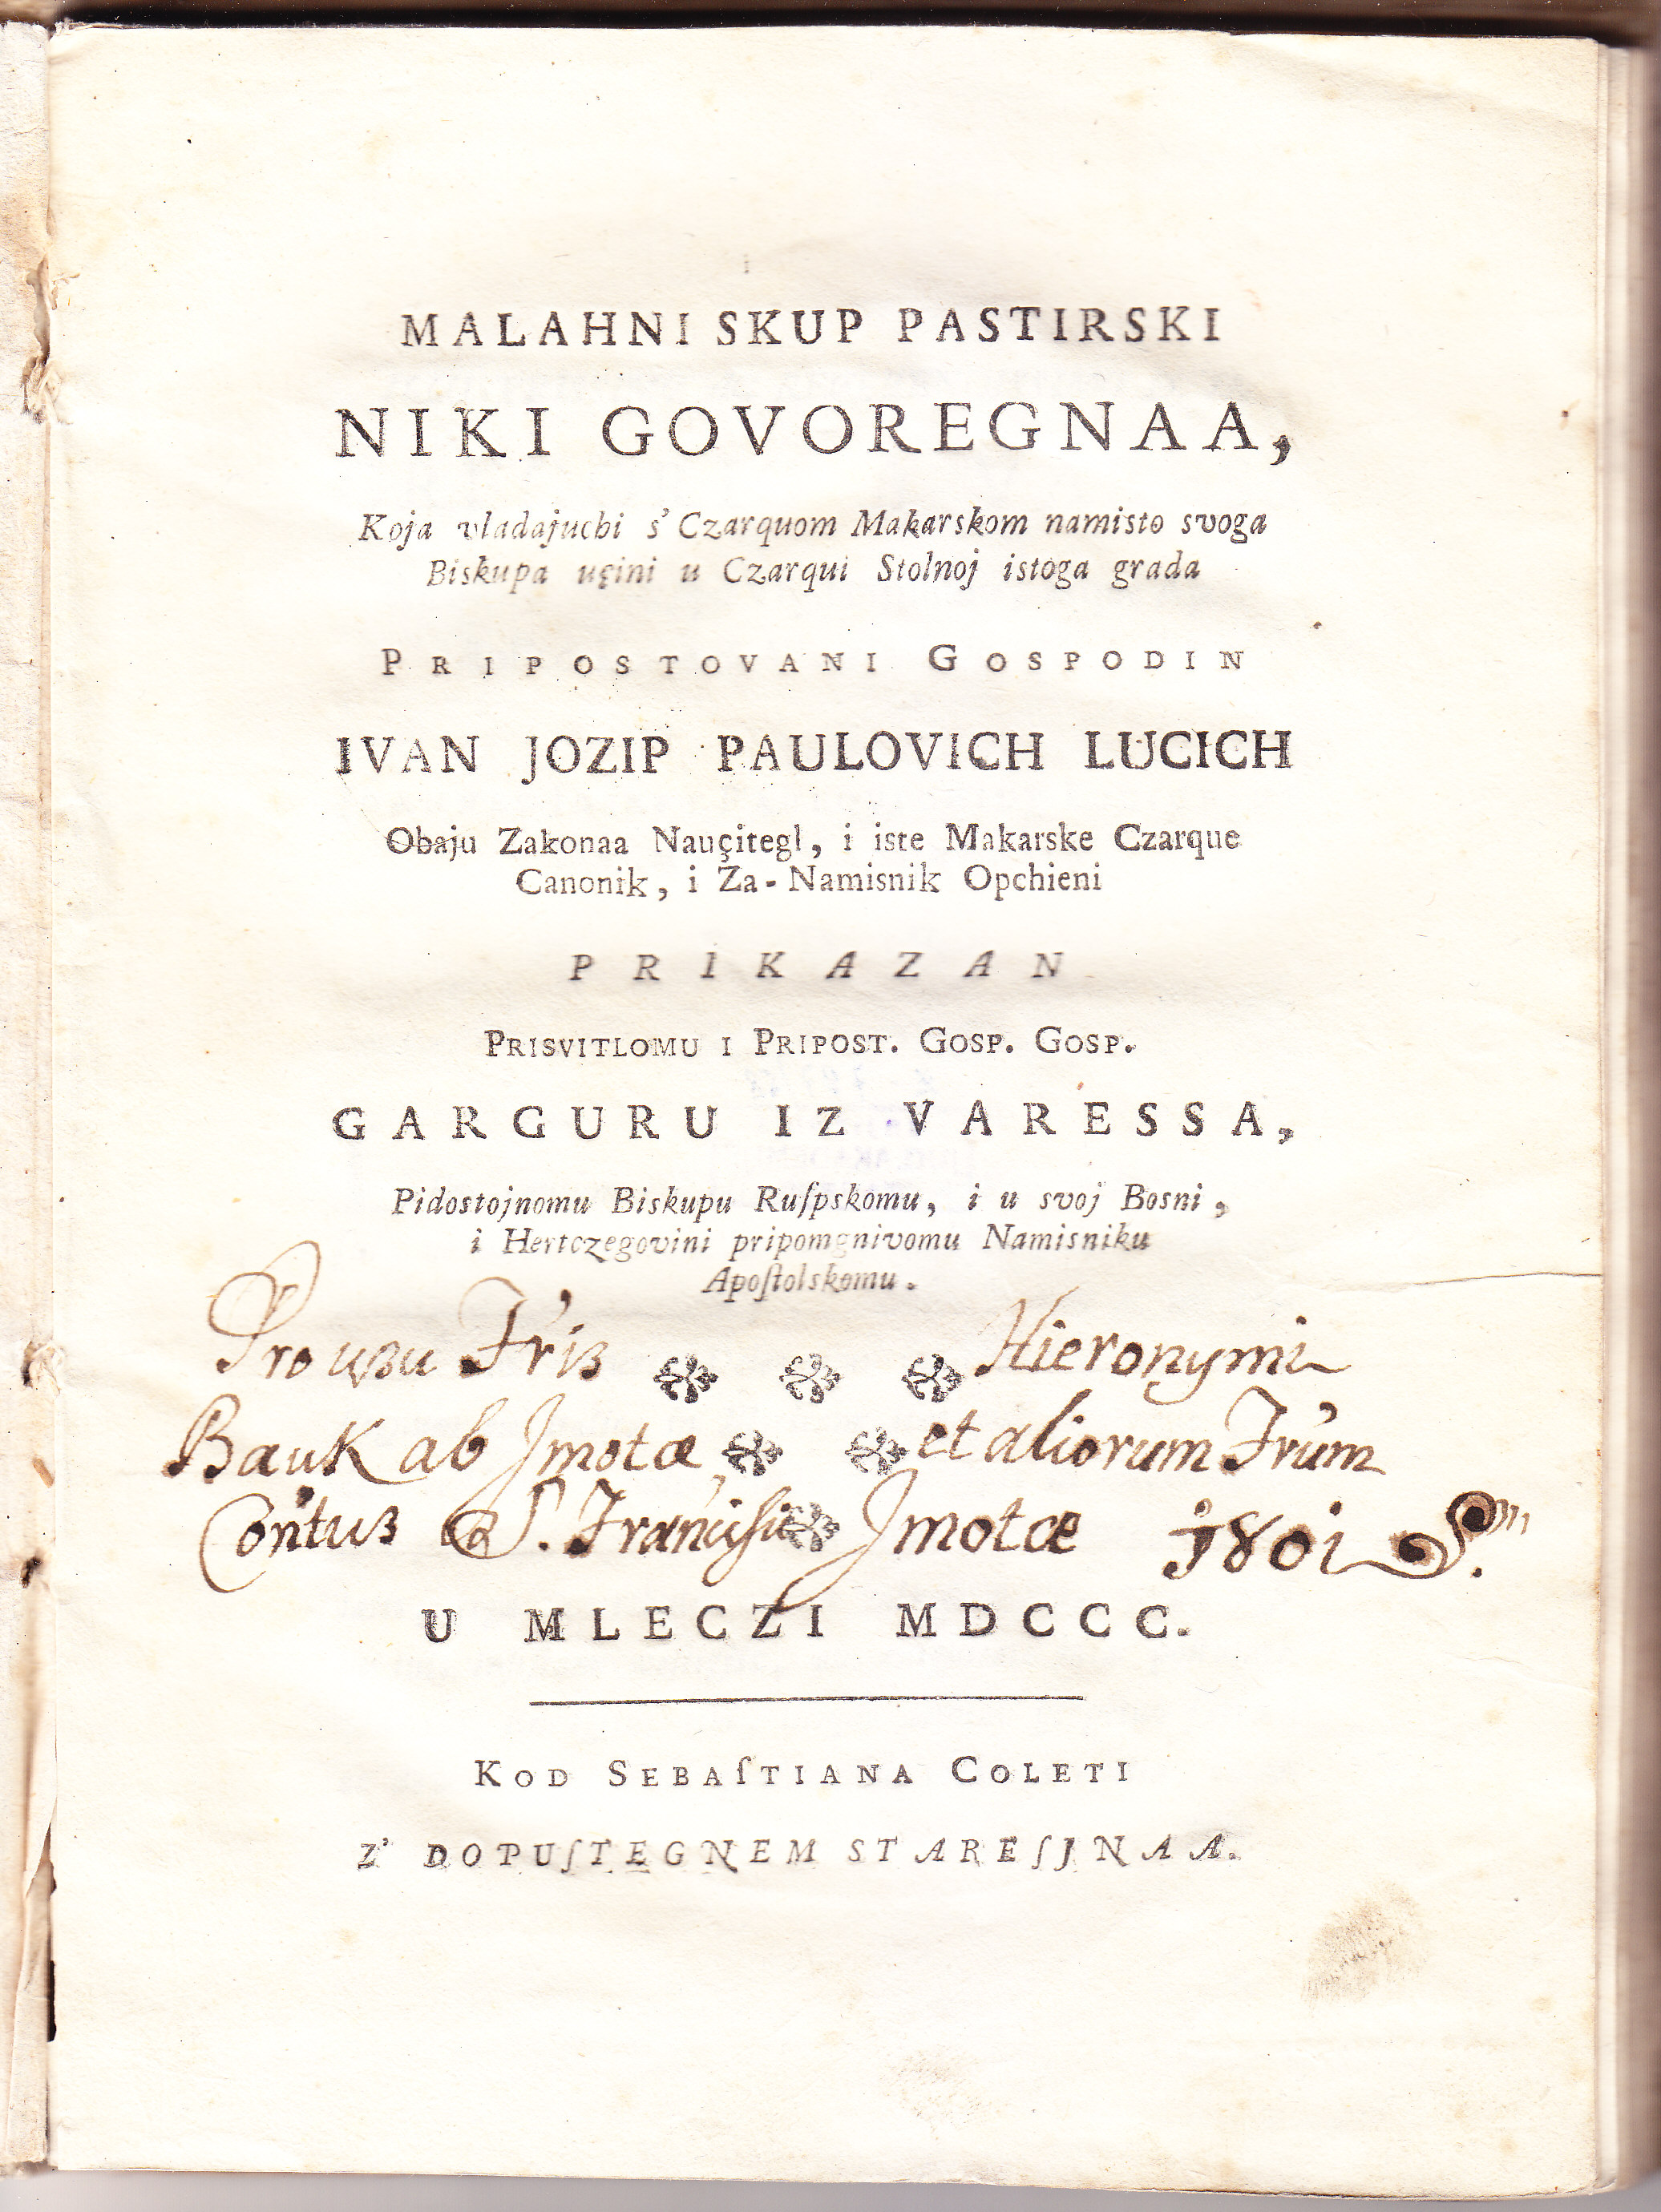 MALAHNI SKUP PASTIRSKI
NIKI GOVOREGNAA,
Koja vladajuchi s' Czarquom Makarskom namisto svoga
Biskupa uçini u Czarqui Stolnoj istoga grada
PRIPOSTOVANI GOSPODIN
IVAN JOZIP PAULOVICH LUCICH
Obaju Zakonaa Nauçitegl, i iste Makarske Czarque
Canonik, i Za-Namisnik Opchieni
PRIKAZAN
PRISVITLOMU I PRIPOST. GOSP. GOSP.
GARGURU IZ VARESSA,
Pidostojnomu Biskupu Ruſpskomu, i u svoj Bosni,
i Hertczegovini pripomgnivomu Namisniku
Apoſtolskomu.
Pro uzu Fr'is Hieronymi
Bauk ab Jmotæ, et aliorum Fr'um
Con'tus S. Fran'cisci Jmotæ 1801 S.
U MLECZI MDCCC.
KOD SEBAſTIANA COLETI
Z' DOPUſTEGNEM STAREſJNAA.